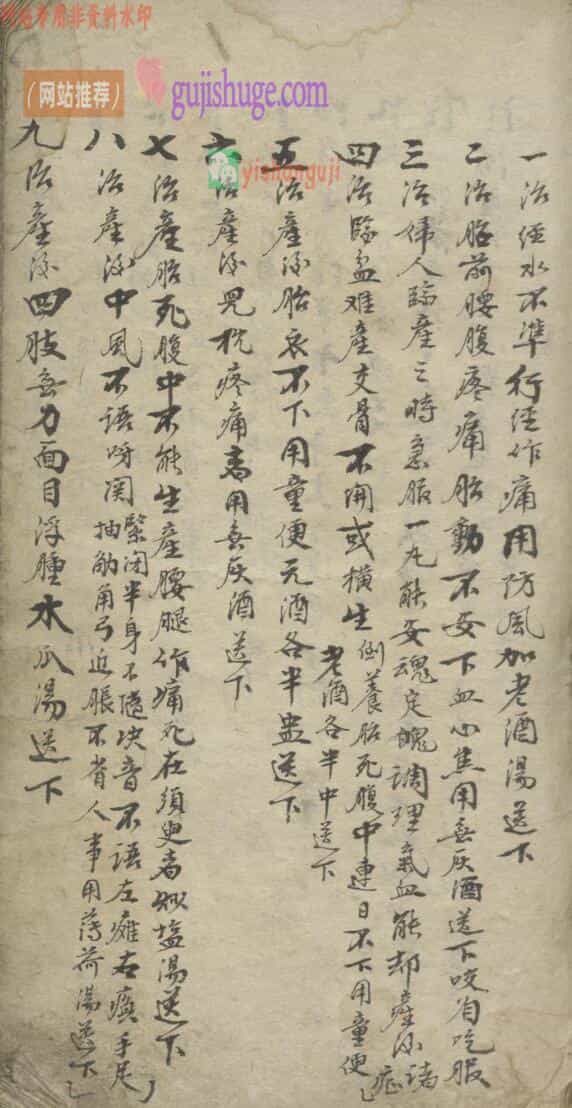 一治经水不準行经作痛用防風加老酒湯送下
二治胎前腰腹疼痛胎動不安下血小焦用無灰酒送下咬省吃服
三治婦人臨產之時急服一丸能安魂定魄調理氣血能却產後諸症
四治臨盆难產交骨不開或横生倒養胎死腹中連日不下用童便老酒各半中送下
五治產後胎衣不下用童便无酒各半盅送下
六治產後児枕疼痛用無灰酒送下
七治產胎死腹中不能生產腰腿作痛死在須臾塩湯送下
八治產後中風不語呀関緊闭半身不隨失音不語左瘫右痪手足抽觔角弓近脹不省人事用薄荷湯送下
九治產後四肢無力面目浮腫水瓜湯送下
网站专用非资料水印
（网站推荐）
gujishuge.com
yishanguji